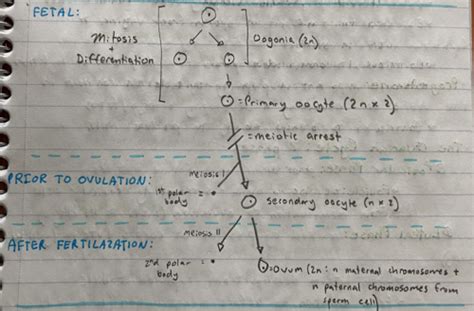 FETAL:
Mitosis
+
Differentiation
Oogonia (2n)
= Primary oocyte (2n x 2)
= meiotic arrest
PRIOR TO OVULATION:
meiosis I
1st polar = •
body
secondary oocyte (n x 2)
AFTER FERTILAZATION:
meiosis II
2nd polar = •
body
= ovum (2n: n maternal chromosomes +
n paternal chromosomes from
sperm cell)